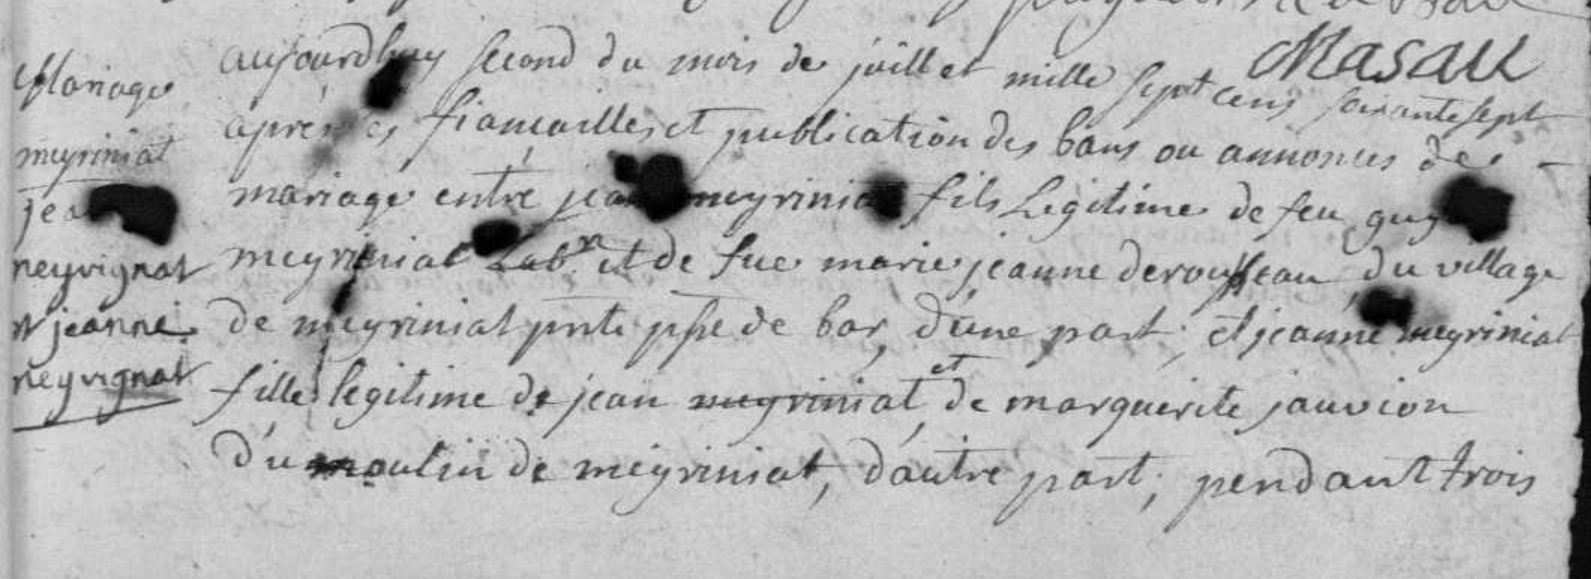 Masau
Mariage
meyriniat
jea
neyvignat
et jeanne
neyvignat
aujourdhuy second du mois de juillet mille sept cens soixante sept
après les fiancailles et publication des bans ou annonces de
mariage entre jean meyriniat fils Legitime de feu guy
meyriniat Lab.r et de fue marie jeanne derousseau du village
de meyriniat pnte psse de bar, d'une part; et jeanne meyriniat
fille legitime de jean meyriniat, et de marguerite jauvion
du moulin de meyriniat, d'autre part; pendant trois